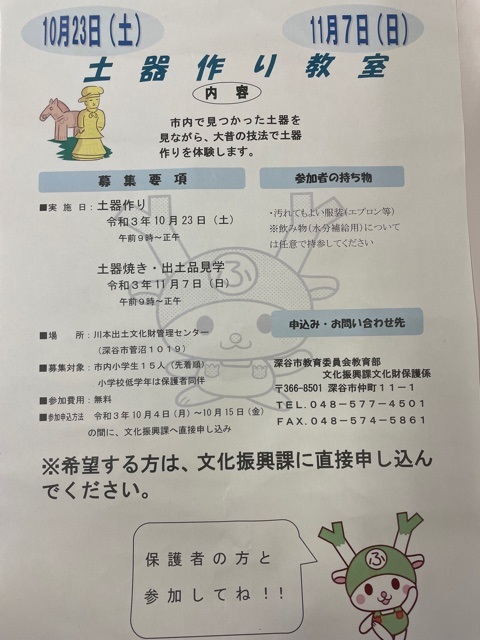 10月23日（土）
11月7日（日）
土器作り教室
内容
市内で見つかった土器を
見ながら、大昔の技法で土器
作りを体験します。
募集要項
■実施日：土器作り
令和3年10月23日（土）
午前9時～正午
土器焼き・出土品見学
令和3年11月7日（日）
午前9時～正午
■場　所：川本出土文化財管理センター
（深谷市菅沼1019）
■募集対象：市内小学生15人（先着順）
小学校低学年は保護者同伴
■参加費用：無料
■参加申込方法　令和3年10月4日（月）～10月15日（金）
の間に、文化振興課へ直接申し込み
参加者の持ち物
・汚れてもよい服装（エプロン等）
※飲み物（水分補給用）について
は任意で持参してください
申込み・お問い合わせ先
深谷市教育委員会教育部
文化振興課文化財保護係
〒366-8501 深谷市仲町11－1
TEL.048－577－4501
FAX.048－574－5861
※希望する方は、文化振興課に直接申し込ん
でください。
保護者の方と
参加してね！！
ふ
ふ